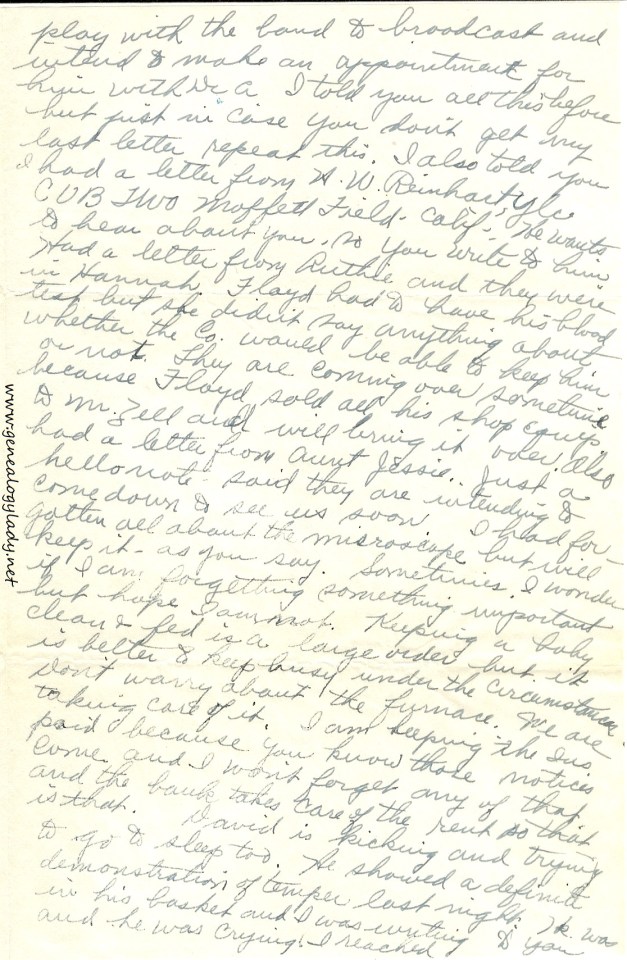 play with the band to broadcast and
intend to make an appointment for
him with Dr A I told you all this before
but just in case you don't get my
last letter repeat this. I also told you
I had a letter from H. W. Reinhart Y/c
CUB TWO Moffett Field - Calif. He wants
to hear about you. So you write to him
Had a letter from Ruthie and they were
in Hannah. Floyd had to have his blood
test but she didn't say anything about
whether the Co. would be able to keep him
or not. They are coming over sometime
because Floyd sold all his shop equip
to Mr. Zell and will bring it over. Also
had a letter from Aunt Jessie. Just a
hello note - said they are intending to
come down to see us soon I had for-
gotten all about the misroscope but will
keep it - as you say. Sometimes, I wonder
if I am forgetting something important
but hope I am not. Keeping a baby
clean & fed is a large order but it
is better to keep busy under the circumstances.
Don't worry about the furnace. We are
taking care of it. I am keeping the Ins
paid because you know those notices
come and I won't forget any of that
and the bank takes care of the rent so that
is that. David is kicking and trying
to go to sleep too. He showed a definite
demonstration of temper last night. He was
in his basket and I was writing to you
and he was crying. I reached
www.genealogylady.net